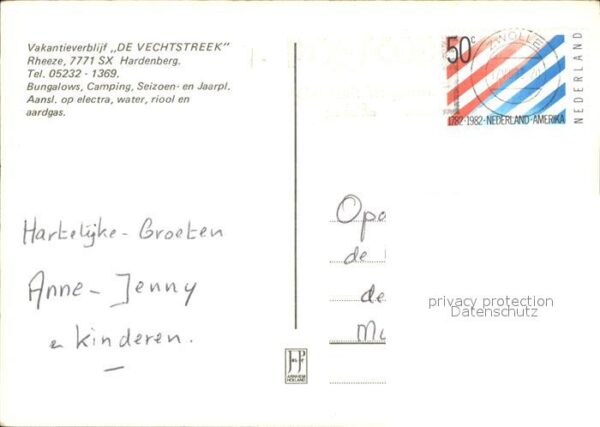 Vakantieverblijf „DE VECHTSTREEK"
Rheeze, 7771 SX Hardenberg.
Tel. 05232 - 1369.
Bungalows, Camping, Seizoen- en Jaarpl.
Aansl. op electra, water, riool en
aardgas.
50c
ZWOLLE
NEDERLAND
1782-1982-NEDERLAND-AMERIKA
Hartelijke-Groeten
Anne-Jenny
en kinderen.
Opa
de
de
privacy protection
Datenschutz
JosPé
ARNHEM
HOLLAND